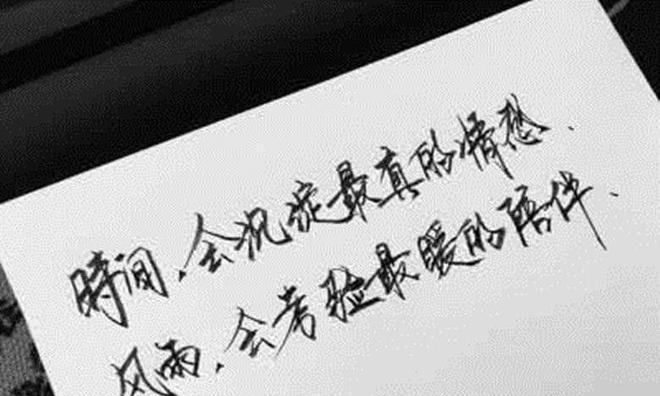 時间，会沉淀最真的情愁、
风雨，会考验最暖的陪伴、